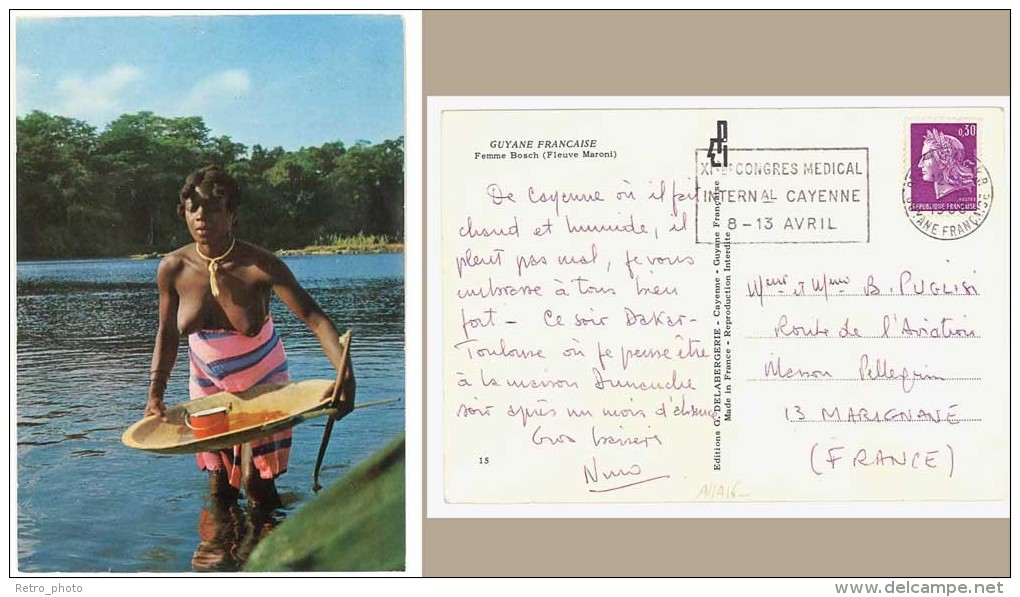 GUYANE FRANCAISE
Femme Bosch (Fleuve Maroni)
De Cayenne où il fait
chaud et humide, il
pleut pas mal, je vous
embrasse à tous bien
fort - Ce soir Dakar-
Toulouse où je pense être
à la maison Dimanche
soir après un mois d'absence
Gros baisers
Nino
15
Editions G. DELABERGERIE - Cayenne - Guyane Française
Made in France - Reproduction Interdite
CONGRES MEDICAL
INTERNAL CAYENNE
8-13 AVRIL
0,30
POSTES
REPUBLIQUE FRANÇAISE
GUYANE FRANÇAISE
Meur et Mme B. PUGLISI
Route de l'Aviation
Maison Pellegrin
13 MARIGNANE
(FRANCE)
Retro_photo
www.delcampe.net